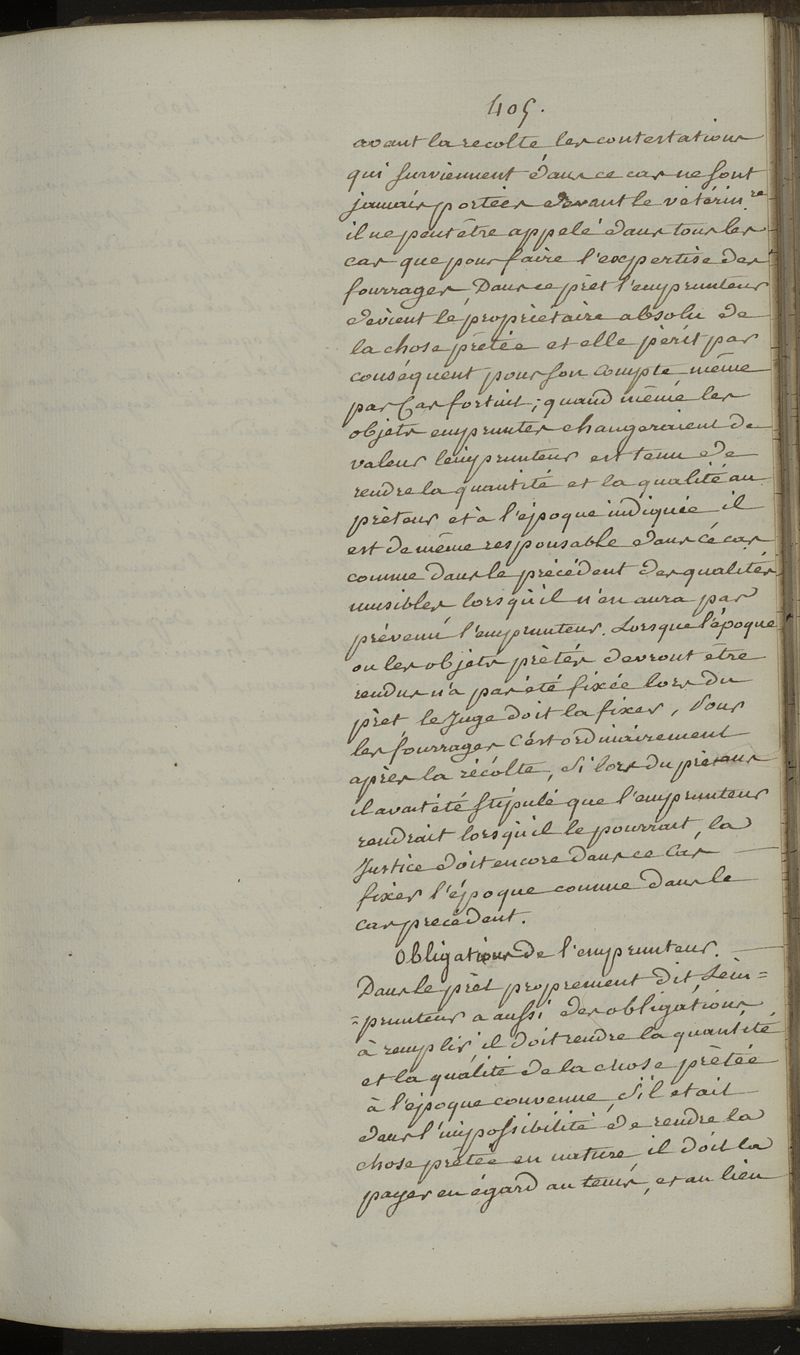 405.
avant la recolte les contestations
qui surviennent dans ce cas ne sont
jamais portées devant le vétérin.re
il ne peut être appelé dans tous les
cas que pour faire l'expertise des
fourrages. Dans ce prêt l'emprunteur
devient le propriétaire absolu de
la chose prêtée et elle périt par
conséquent pour son compte même
par Cas fortuit; quand même les
objets empruntés changeraient de
valeur l'emprunteur est tenu de
rendre la quantité et la qualité au
prêteur et à l'époque indiquée il
est de même responsable dans ce cas
comme dans le précédent des qualités
nuisibles lorsqu'il n'en aura pas
prévenu l'emprunteur. Lorsque l'époque
ou les objets prêtés devront être
rendus n'a pas été fixée lors du
prêt le Juge doit la fixer, Pour
les fourrages c'est ordinairement
après la récolte, Si lors du prêt
il avait été stipulé que l'emprunteur
rendrait lorsqu'il le pourrait, la
Justice doit encore dans ce Cas
fixer l'époque comme dans le
cas precédent.
Obligations de l'emprunteur.
Dans le prêt proprement dit, L'em=
=prunteur a aussi des obligations
à remplir il doit rendre la quantité
et la qualité de la chose prêtée
à l'époque convenue, S'il etait
dans l'impossibilité de rendre la
chose prêtée en nature il doit la
payer en égard au tems, et au lieu